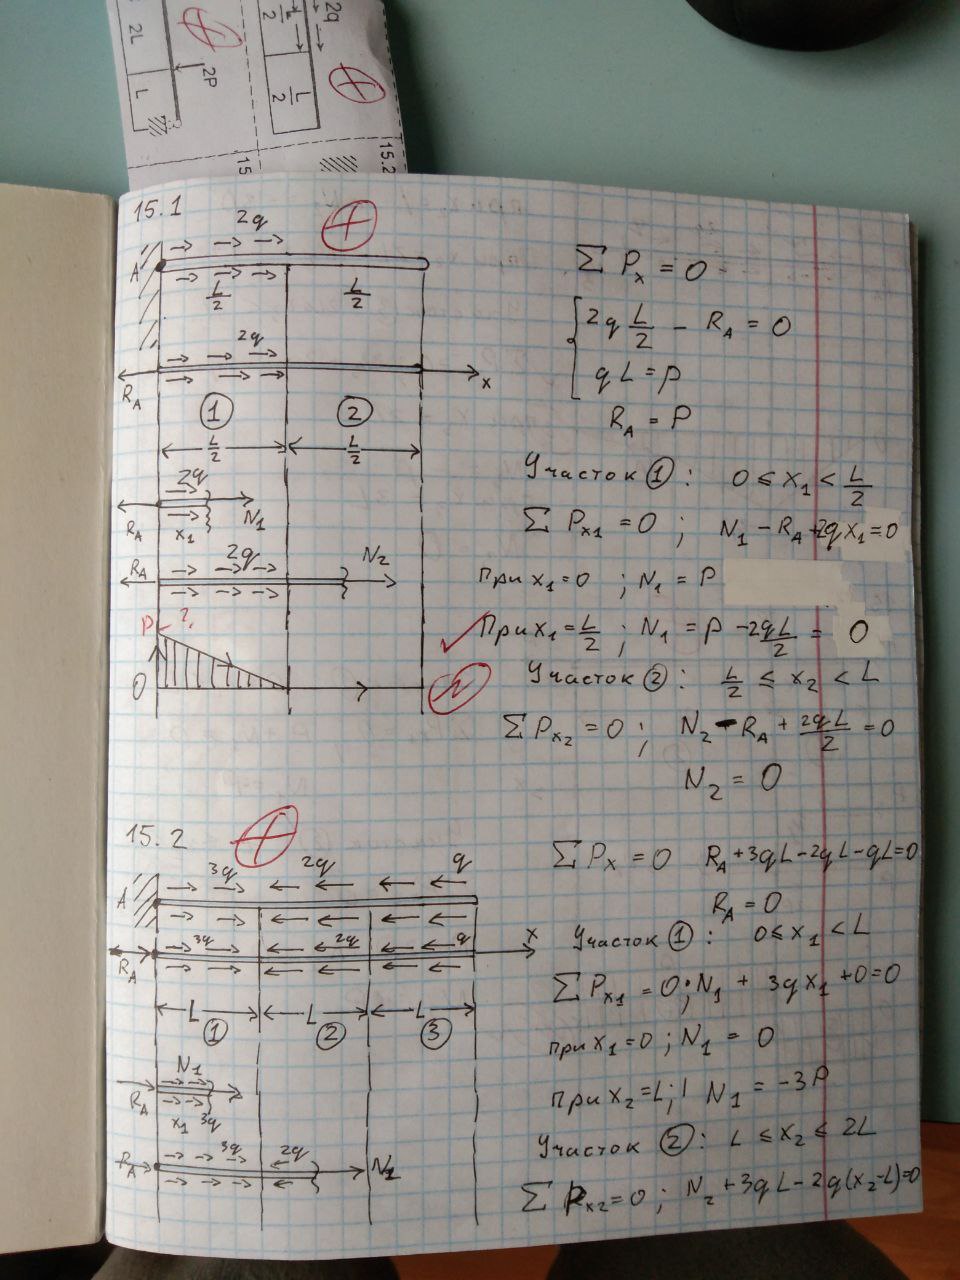 2L
L
2P
2q
L/2
L/2
15.2
15
15.1
2q
A
L/2
L/2
2q
R_A
x
1
2
L/2
L/2
2q
R_A
x₁
N₁
R_A
2q
N₂
P - ?
0
Σ P_x = 0
2q L/2 - R_A = 0
qL = P
R_A = P
Участок ①: 0 ≤ x₁ < L/2
Σ P_x₁ = 0 ; N₁ - R_A + 2qx₁ = 0
При x₁ = 0 ; N₁ = P
При x₁ = L/2 ; N₁ = P - 2qL/2 = 0
Участок ②: L/2 ≤ x₂ < L
Σ P_x₂ = 0 ; N₂ - R_A + 2qL/2 = 0
N₂ = 0
15.2
3q 2q q
A
3q 2q q
R_A
x
L L L
1 2 3
N₁
R_A
x₁ 3q
3q 2q
R_A
N₂
Σ P_x = 0 R_A + 3qL - 2qL - qL = 0
R_A = 0
Участок ①: 0 ≤ x₁ < L
Σ P_x₁ = 0 ; N₁ + 3qx₁ + 0 = 0
при x₁ = 0 ; N₁ = 0
при x₂ = L ; N₁ = -3P
Участок ②: L ≤ x₂ ≤ 2L
Σ P_x₂ = 0 ; N₂ + 3qL - 2q(x₂-L) = 0